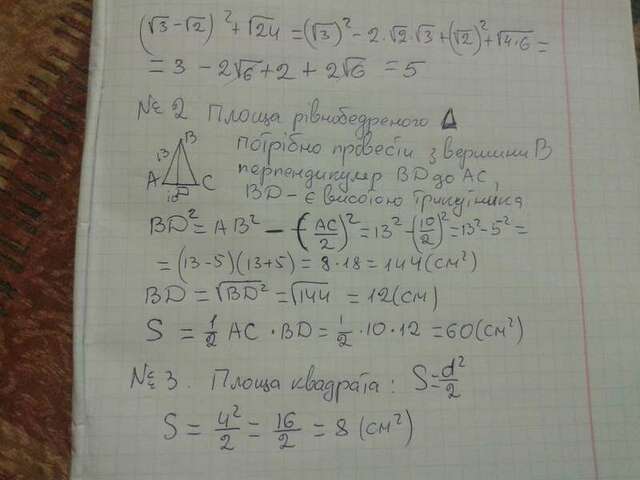 (√3 - √2)² + √24 = (√3)² - 2·√2·√3 + (√2)² + √4·6 =
= 3 - 2√6 + 2 + 2√6 = 5
№ 2 Площа рівнобедреного Δ
потрібно провести з вершини B
перпендикуляр BD до AC,
BD - є висотою трикутника
B
13
A D C
10
BD² = AB² - (AC/2)² = 13² - (10/2)² = 13² - 5² =
= (13-5)(13+5) = 8·18 = 144 (см²)
BD = √BD² = √144 = 12 (см)
S = 1/2 AC · BD = 1/2 · 10 · 12 = 60 (см²)
№ 3. Площа квадрата: S = d²/2
S = 4²/2 = 16/2 = 8 (см²)